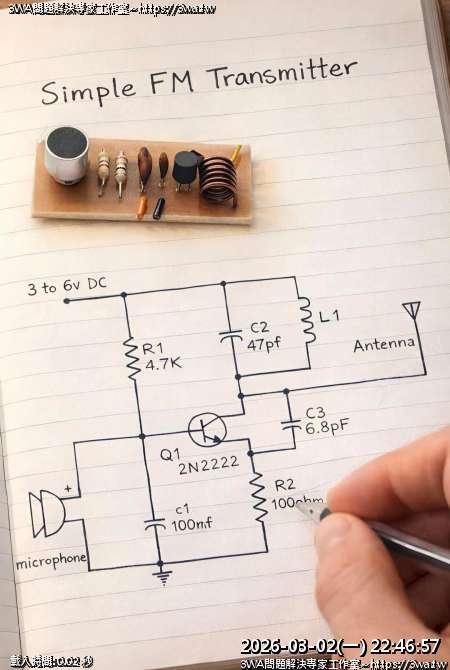 3WA問題解決專家工作室~https://3wa.tw
Simple FM Transmitter
3 to 6v DC
R1
4.7K
C2
47pf
L1
Antenna
C3
6.8pF
Q1
2N2222
+
R2
100ohm
c1
100nf
microphone
載入時間:0.02 秒
2026-03-02(一) 22:46:57
3WA問題解決專家工作室~https://3wa.tw